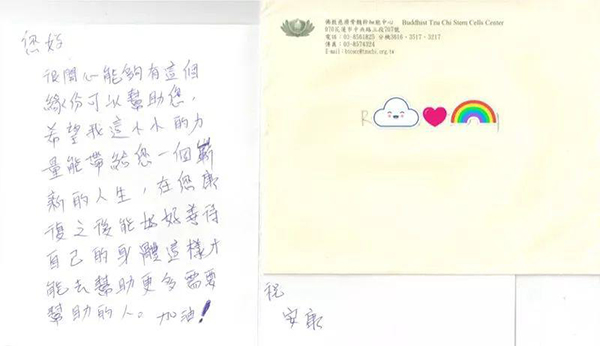 您好
很開心能夠有這個
緣份可以幫助您,
希望我這小小的力
量能帶給您一個嶄
新的人生,在您康
復之後能好好善待
自己的身體這樣才
能去幫助更多需要
幫助的人。加油!
佛教慈濟骨髓幹細胞中心 Buddhist Tzu Chi Stem Cells Center
970花蓮市中央路三段707號
電話:03-8561825 分機3616、3517、3217
傳真:03-8574324
E-mail:btcscc@tzuchi.org.tw
R
祝
安康